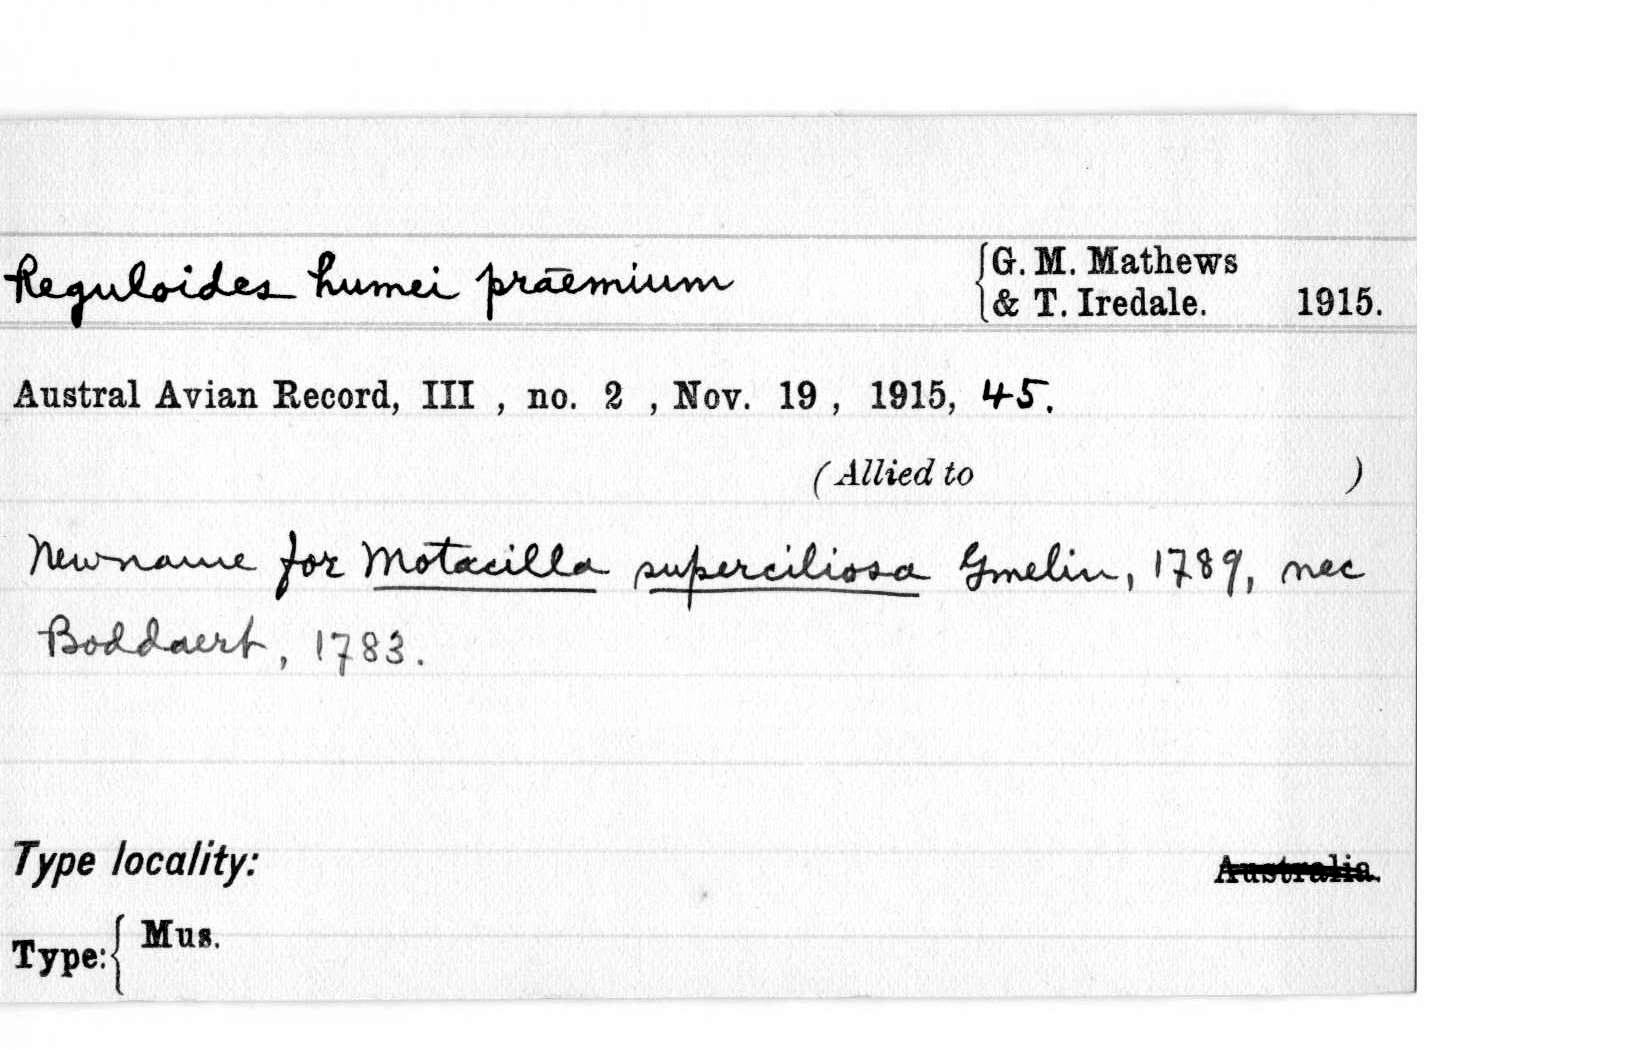 Reguloides humei praemium
{G. M. Mathews
& T. Iredale. 1915.
Austral Avian Record, III , no. 2 , Nov. 19 , 1915, 45.
(Allied to )
New name for Motacilla superciliosa Gmelin, 1789, nec
Boddaert, 1783.
Type locality: Australia.
Type:{ Mus.